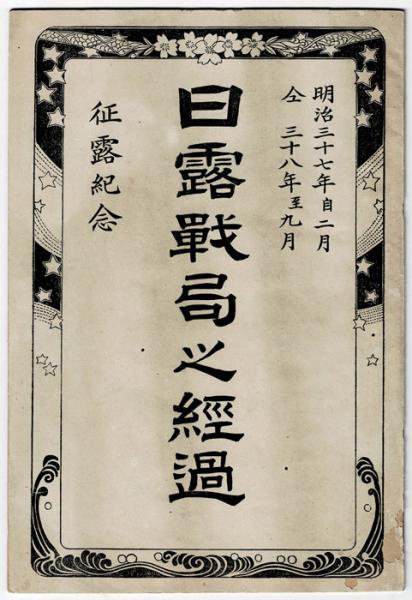 明治三十七年自二月
仝 三十八年至九月
日露戰局之經過
征露紀念